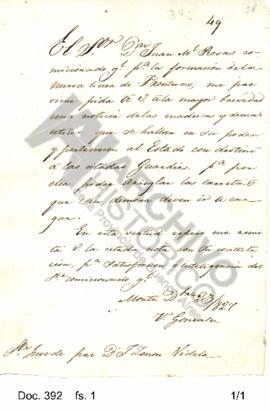 392
49
El Sor Dn Juan Ml Rosas co-
micionado gl pa la formación de la
nueva linea de Fronteras, me pre
viene pida a V. a la mayor brevedad
una noticia de las maderas y demas
utiles que se hallan en su poder
y pertenecen al Estado con destino
a las citadas Guardias, pa por
ella poder arreglar las carretas
que sin demora deven ir a car-
gar.
En esta virtud espero me remita
V. la citada nota con su contesta-
ción, pa satisfacion e inteligencia del
Sr comicionado gl
Monte
23/827
Vte Gonzalez
Sor Juez de paz Dn
Videla
ARCHIVO
HISTORICO
Doc. 392 fs. 1
1/1